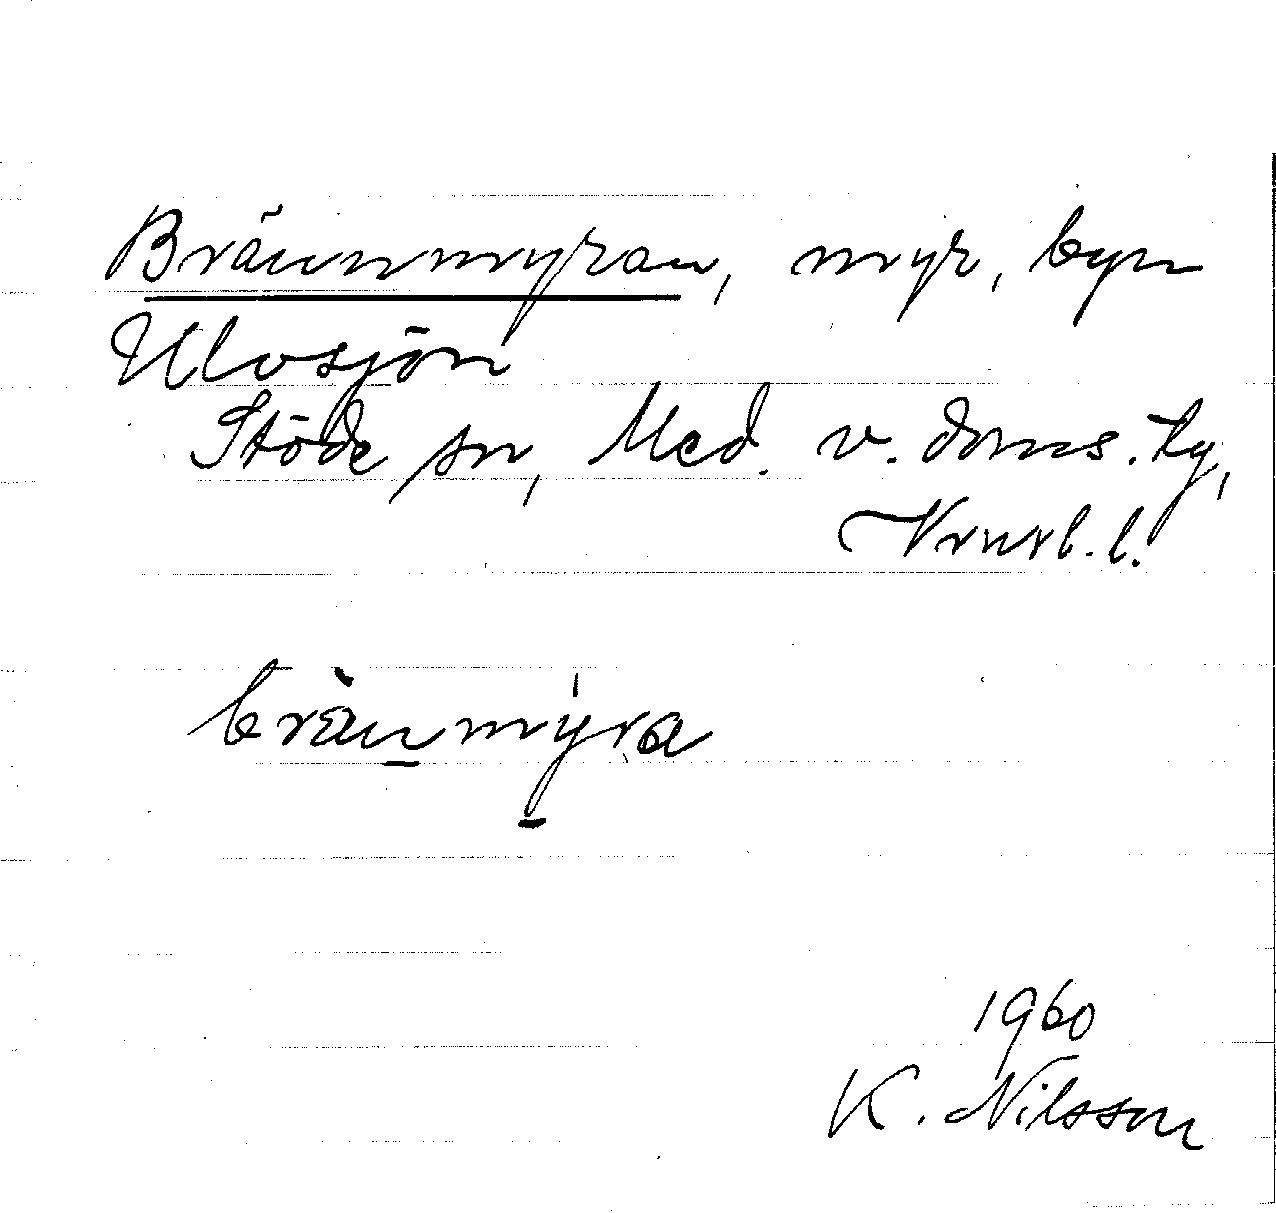 Brännmyran, myr, byn
Ulvsjön
Stöde sn, Med. v. doms. tg,
Vrnrl. l.
brä̀nmýra
1960
K. Nilsson